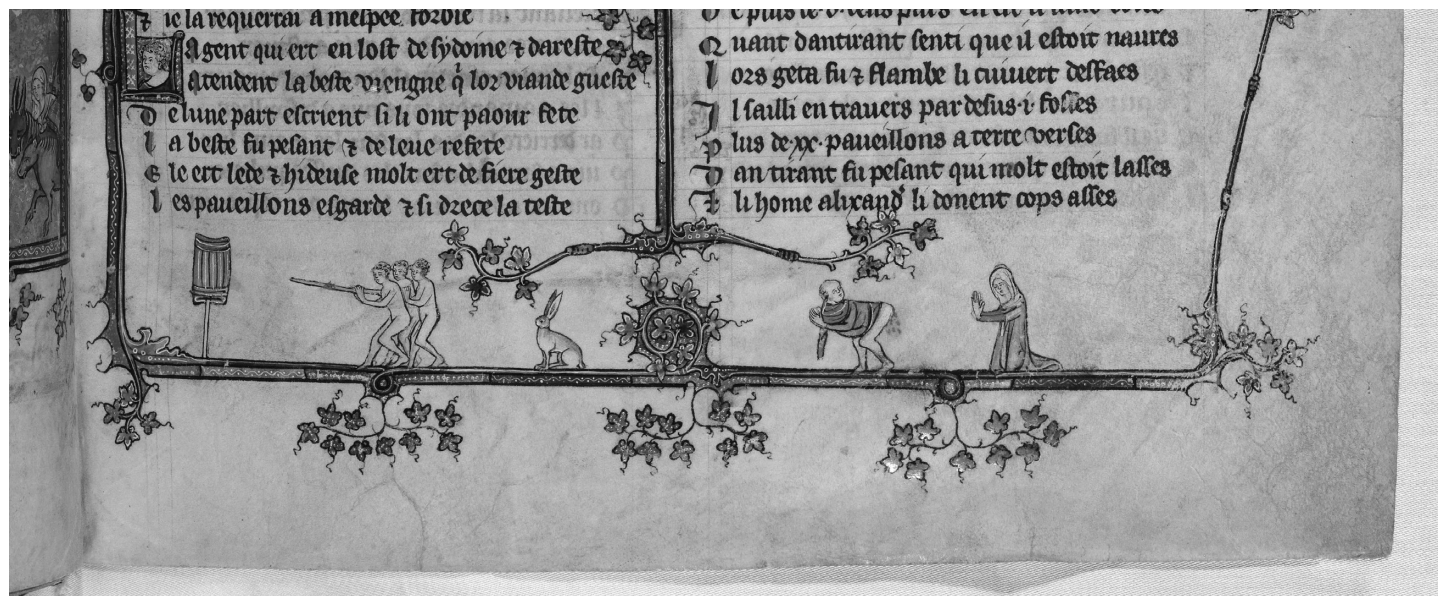 ⁊ ie la requerrai a mespee forbie
La gent qui ert en lost de sydoine ⁊ dareste
atendent la beste viengne q̃ lor viande gueste
De lune part escrient si li ont paour fete
La beste fu pesant ⁊ de leue refete
Ele ert lede ⁊ hideuse molt ert de fiere geste
Les paueillons esgarde ⁊ si drece la teste
Quant dantirant senti que il estoit naures
Lors geta fu ⁊ flambe li cuiuert desfaes
Il sailli en trauers par desus .i. fosses
Plus de .xx. paueillons a terre verses
Dantirant fu pesant qui molt estoit lasses
⁊ li home alixand' li donent cops asses